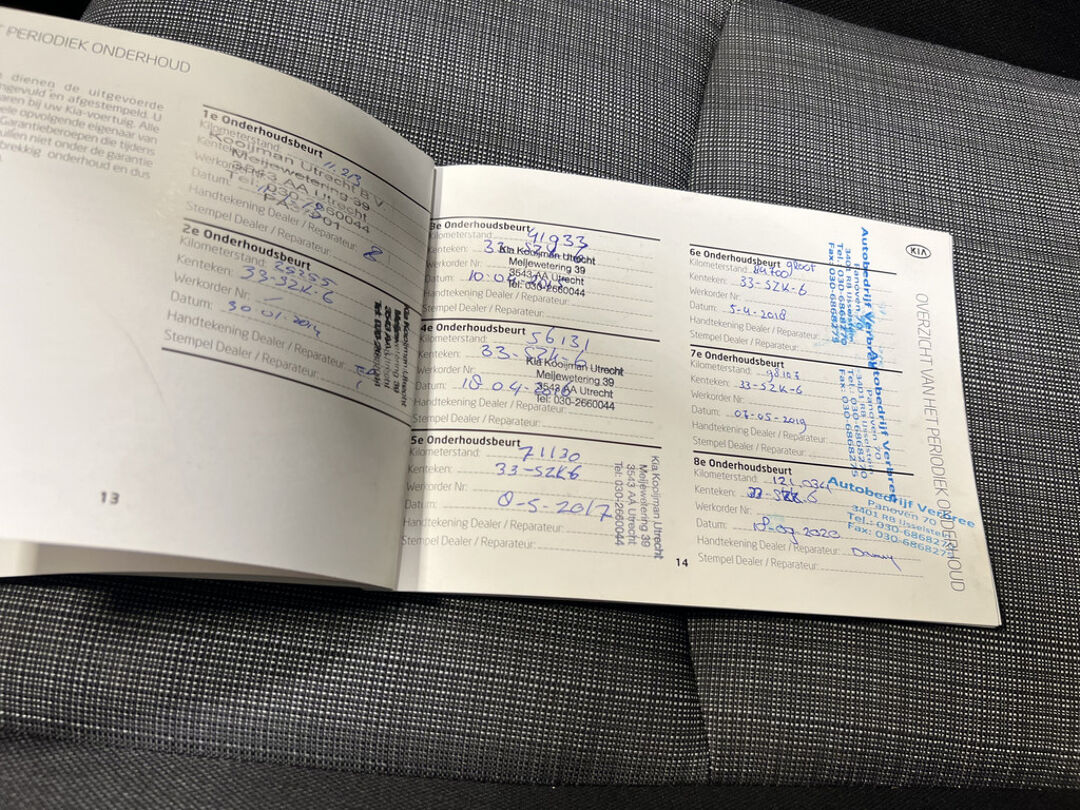 PERIODIEK ONDERHOUD
dienen de uitgevoerde
en afgestempeld. U
bij uw Kia-voertuig. Alle
opvolgende eigenaar van
Garantieberoepen die tijdens
niet onder de garantie
onderhoud en dus
1e Onderhoudsbeurt
Kilometerstand: 11.213
Kenteken:
Kooijman Utrecht B.V.
Meijewetering 39
3543 AA Utrecht
Tel. 030-2660044
Werkorder
Datum:
Handtekening Dealer / Reparateur:
Stempel Dealer / Reparateur:
2e Onderhoudsbeurt
Kilometerstand: 25255
Kenteken: 33-SZK-6
Werkorder Nr:
Datum: 30-01-2014
Handtekening Dealer / Reparateur:
Stempel Dealer / Reparateur:
Kia Kooijman Utrecht
Meijewetering 39
3543 AA Utrecht
13
3e Onderhoudsbeurt
Kilometerstand: 41933
Kenteken: 33-SZK-6
Werkorder Nr:
Datum: 10-04-
Handtekening Dealer / Reparateur:
Stempel Dealer / Reparateur:
Kia Kooijman Utrecht
Meijewetering 39
3543 AA Utrecht
Tel: 030-2660044
4e Onderhoudsbeurt
Kilometerstand: 56131
Kenteken: 33-SZK-6
Werkorder Nr:
Datum: 18-04-2016
Handtekening Dealer / Reparateur:
Stempel Dealer / Reparateur:
Kia Kooijman Utrecht
Meijewetering 39
3543 AA Utrecht
Tel: 030-2660044
5e Onderhoudsbeurt
Kilometerstand: 71130
Kenteken: 33-SZK6
Werkorder Nr:
Datum: 8-5-2017
Handtekening Dealer / Reparateur:
Stempel Dealer / Reparateur:
Kia Kooijman Utrecht
Meijewetering 39
3543 AA Utrecht
Tel: 030-2660044
14
6e Onderhoudsbeurt groot
Kilometerstand:
Kenteken: 33-SZK-6
Werkorder Nr:
Datum: 5-4-2018
Handtekening Dealer / Reparateur:
Stempel Dealer / Reparateur:
Autobedrijf Verbree
Panoven 70
3401 RB IJsselstein
Tel.: 030-6868270
Fax: 030-6868275
7e Onderhoudsbeurt
Kilometerstand: 98103
Kenteken: 33-SZK-6
Werkorder Nr:
Datum: 07-05-2019
Handtekening Dealer / Reparateur:
Stempel Dealer / Reparateur:
Autobedrijf Verbree
Panoven 70
3401 RB IJsselstein
Tel.: 030-6868270
Fax: 030-6868275
8e Onderhoudsbeurt
Kilometerstand: 121.034
Kenteken: 33-SZK-6
Werkorder Nr:
Datum: 18-07-2020
Handtekening Dealer / Reparateur: Danny
Stempel Dealer / Reparateur:
Autobedrijf Verbree
Panoven 70
3401 RB IJsselstein
Tel.: 030-6868270
Fax: 030-6868275
KIA
OVERZICHT VAN HET PERIODIEK ONDERHOUD